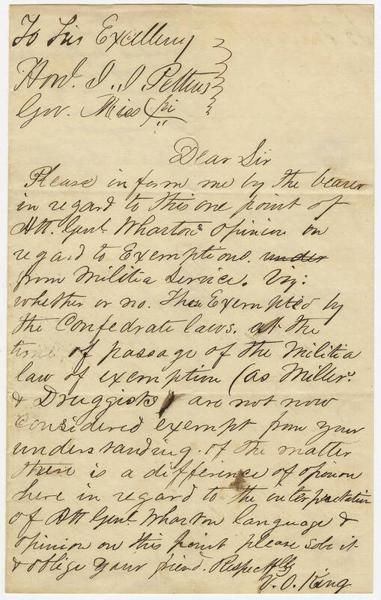 To His Excellency
Hon. J. J. Pettus
Gov. Miss pi
Dear Sir
Please inform me by the bearer
in regard to this one point of
Att. Genl Whartons opinion on
regard to Exemptions. under
from Militia Service. Viz:
whether or no. The Exempted by
the Confedrate laws. at the
time of passage of the Militia
law of exemption (as Millers
& Druggists) are not now
considered exempt from your
understanding. of the matter
there is a difference of opinion
here in regard to the interpretation
of Att Genl Wharton language &
opinion on this point please solve it
& oblige your friend. Respectfly
V. O. King